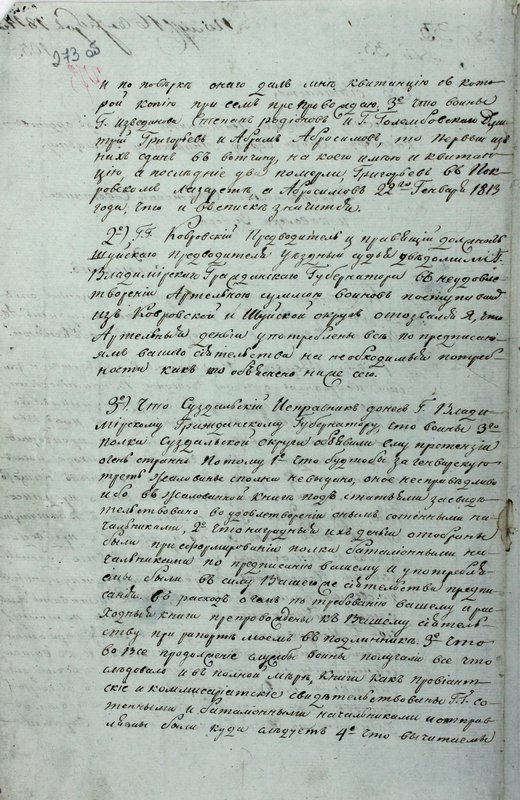 273 об
и по поборке онаго далъ мнѣ квитанцію съ кото
рой копію при семъ препровождаю, 3е что воины
Г. Извединова Степанъ родіоновъ и Г. Голембовскаго Дми
трій Григорьевъ и Абрамъ Абросимовъ, то первый изъ
нихъ сданъ въ вотчину, на коего имѣю и квитан
цію, а последніе два померли, Григорьевъ въ Пок
ровскомъ лазаретѣ, а Абросимовъ 22го Генваря 1813
года, что и въ спискѣ значитъся.
2е) Г.Г. Ковровскій Предводитель и правящій должность
Шуйскаго предводителя уѣздный судья увѣдомили Г.
Владимірскаго Гражданскаго Губернатора въ неудовле
твореніи Артельною суммою воиновъ поступившихъ
изъ Ковровской и Шуйской округъ отозвался я, что
Артельныя деньги употреблены всѣ по предписані
ямъ вашего сіятельства на необходимыя потреб
ности какъ то объяснено ниже сего.
3е) Что Суздальскій Исправникъ донесъ Г. Влади
мірскому Гражданскому Губернатору, что воины 3го
полка Суздальской округи объявили ему претензіи
очень странны потому 1е что будтобы за генварскую
треть жалованье сполна не выдано, оное несправедливо
ибо въ жалованной книгѣ подъ статьями засвидѣ
тельствовано въ удовлетвореніи онымъ сотенными на
чальниками, 2е что наградныя ихъ деньги отобраны
были при сформированіи полка баталіонными на
чальниками по предписанію вашему и употребле
ны были въ силу Вашего же сіятельства предпи
санія въ расходъ о чемъ по требованію вашему и рас
ходныя книги препровождены къ Вашему сіятель
ству при рапортѣ моемъ въ подлинникѣ. 3е что
во все продолженіе службы воины получали все что
слѣдовало и въ полной мѣрѣ, книги какъ провіант
скіе и коммисаріатскіе свидѣтельствованы Г.Г. со
тенными и баталіонными начальниками и отправ
лены были куда слѣдуетъ 4е что вычитаемыя